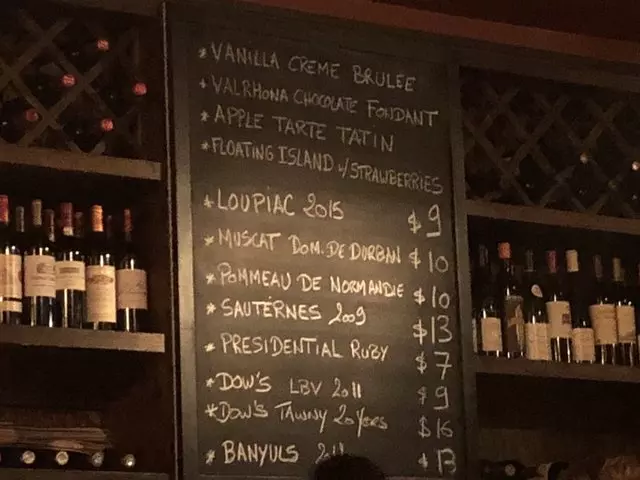 * VANILLA CREME BRULEE
* VALRHONA CHOCOLATE FONDANT
* APPLE TARTE TATIN
* FLOATING ISLAND w/STRAWBERRIES
* LOUPIAC 2015 $9
* MUSCAT DOM. DE DURBAN $10
* POMMEAU DE NORMANDIE $10
* SAUTERNES 2009 $13
* PRESIDENTIAL RUBY $7
* DOW'S LBV 2011 $9
* DOW'S TAWNY 20 YERS $16
* BANYULS $13